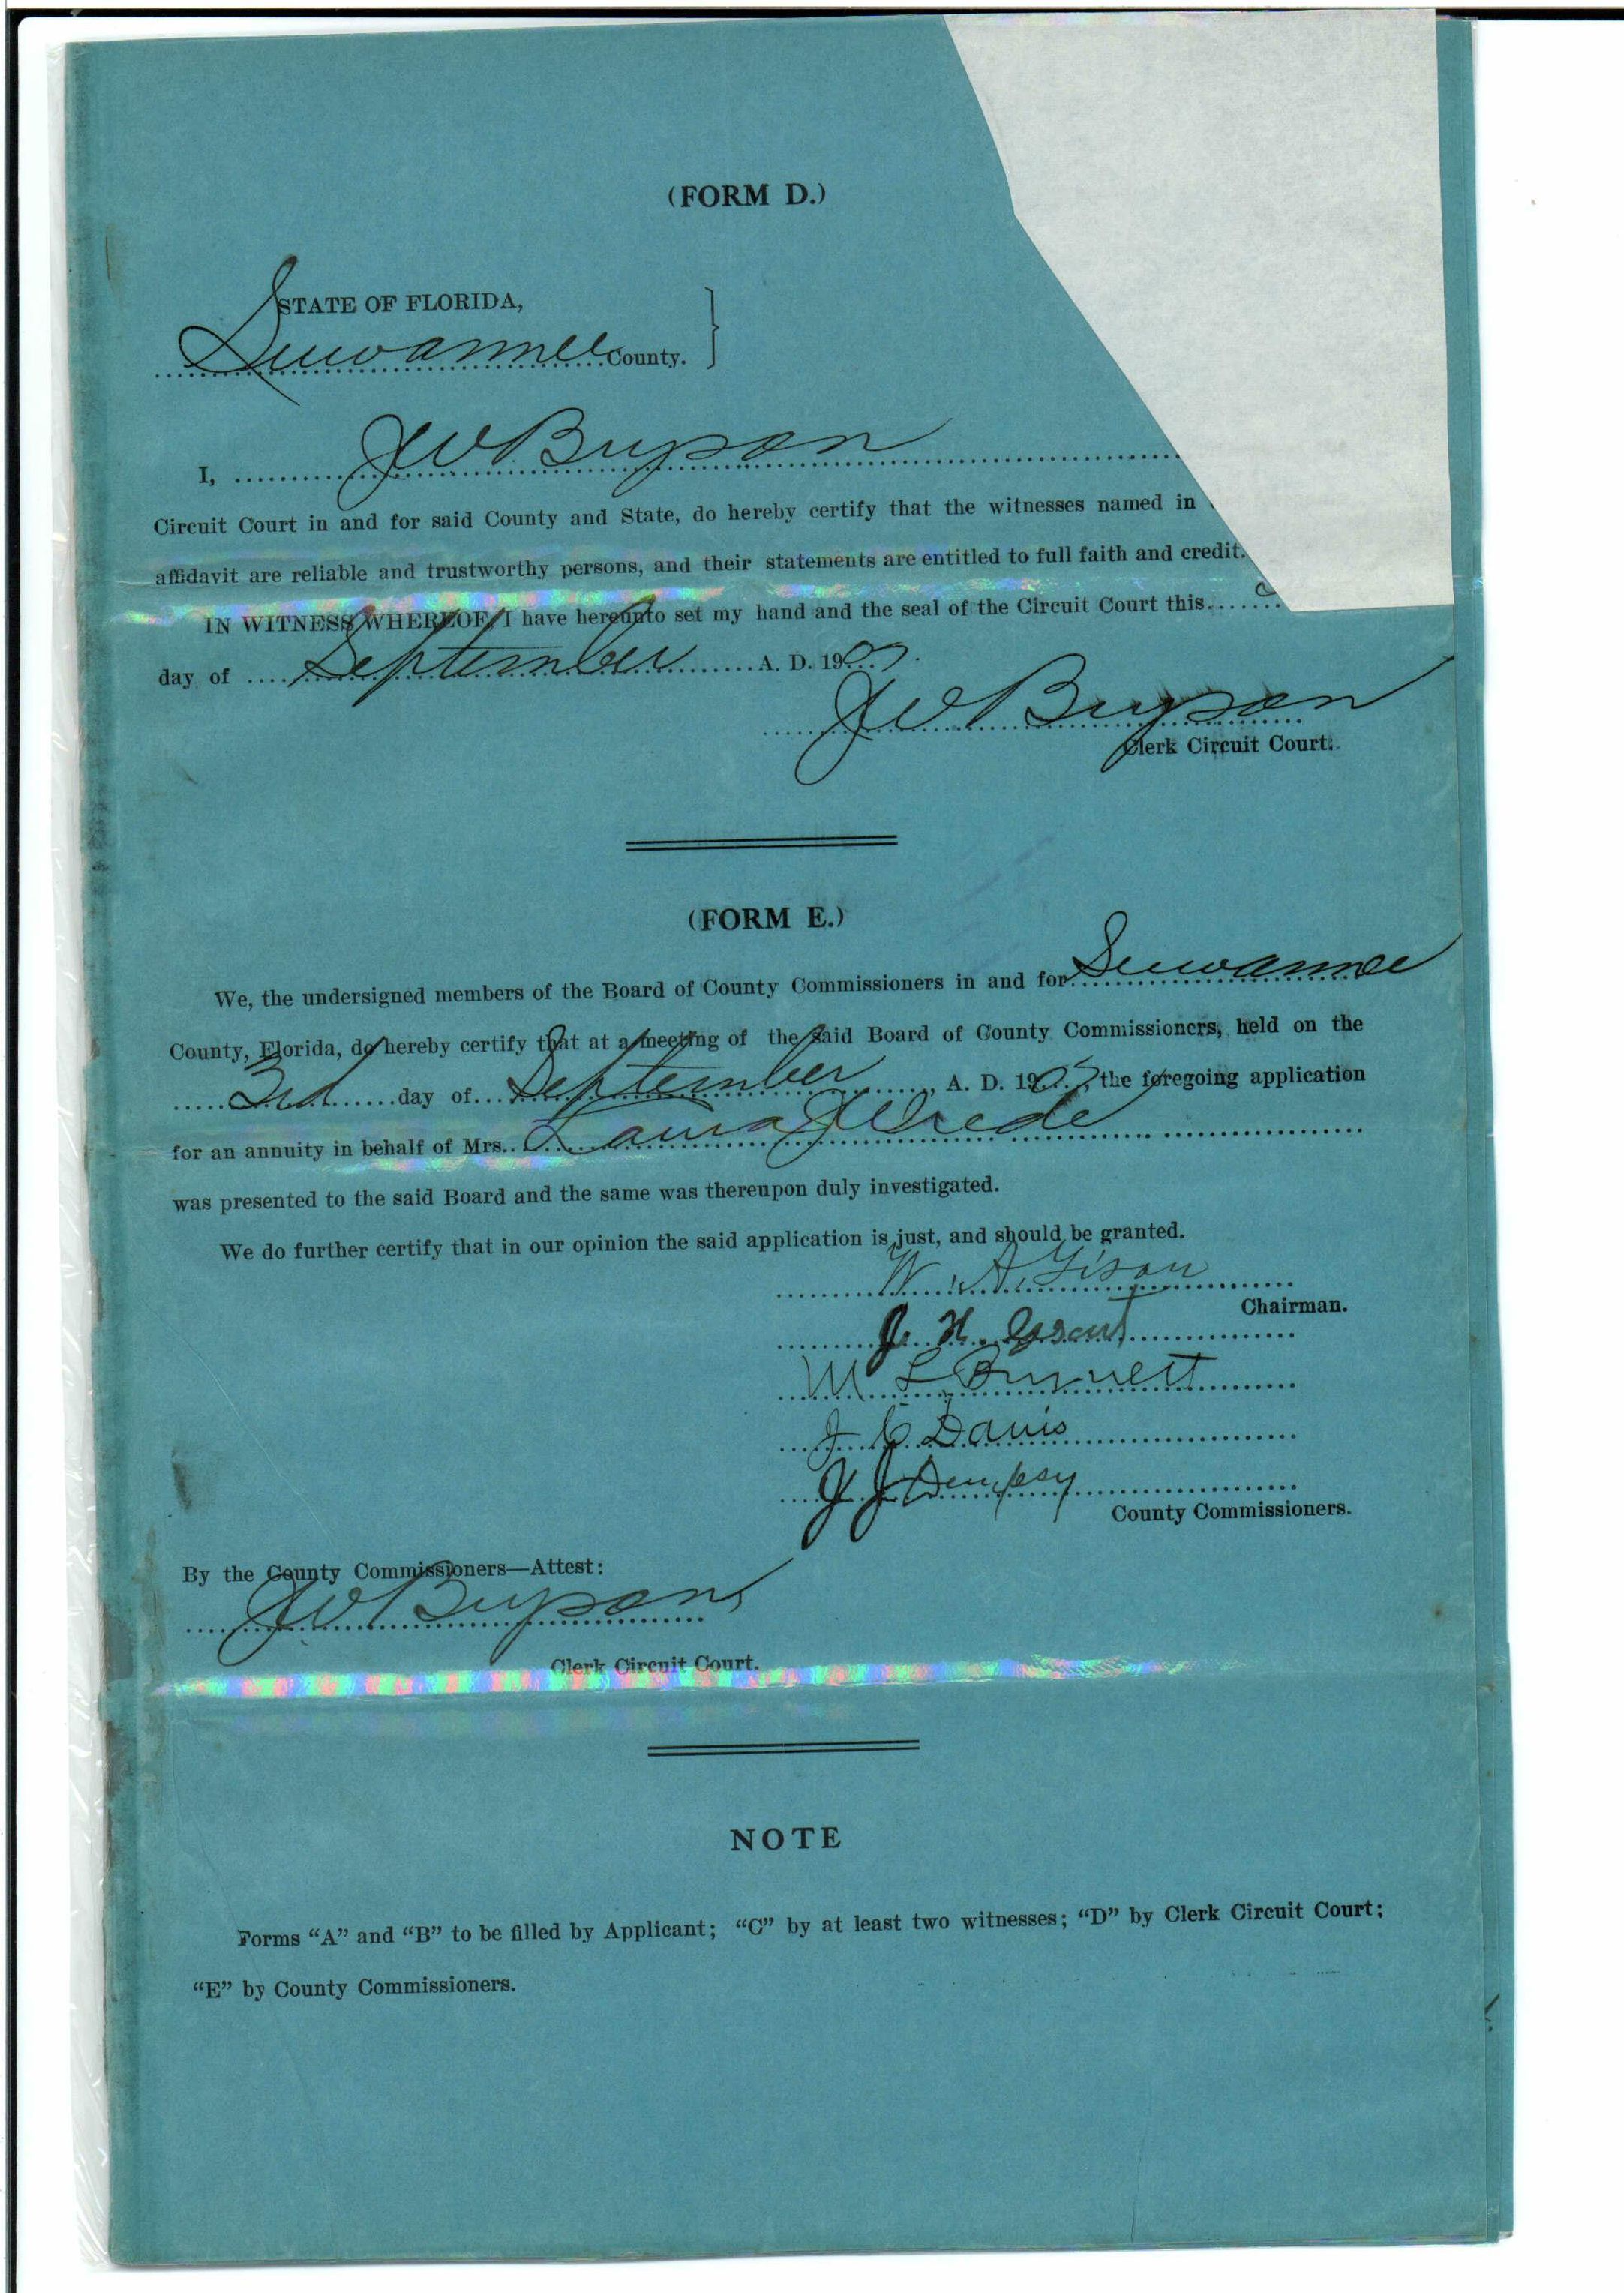 (FORM D.)
STATE OF FLORIDA,
Suwannee County.
I, J W Bryson
Circuit Court in and for said County and State, do hereby certify that the witnesses named in
affidavit are reliable and trustworthy persons, and their statements are entitled to full faith and credit.
IN WITNESS WHEREOF, I have hereunto set my hand and the seal of the Circuit Court this
day of September A. D. 190
J W Bryson
Clerk Circuit Court.
(FORM E.)
We, the undersigned members of the Board of County Commissioners in and for Suwannee
County, Florida, do hereby certify that at a meeting of the said Board of County Commissioners, held on the
3rd day of September, A. D. 190 , the foregoing application
for an annuity in behalf of Mrs. Laura J
was presented to the said Board and the same was thereupon duly investigated.
We do further certify that in our opinion the said application is just, and should be granted.
W. A.
Chairman.
J. H.
M L Burnett
J C Davis
J J Dempsy
County Commissioners.
By the County Commissioners—Attest:
J W Bryson
Clerk Circuit Court.
NOTE
Forms “A” and “B” to be filled by Applicant; “C” by at least two witnesses; “D” by Clerk Circuit Court;
“E” by County Commissioners.